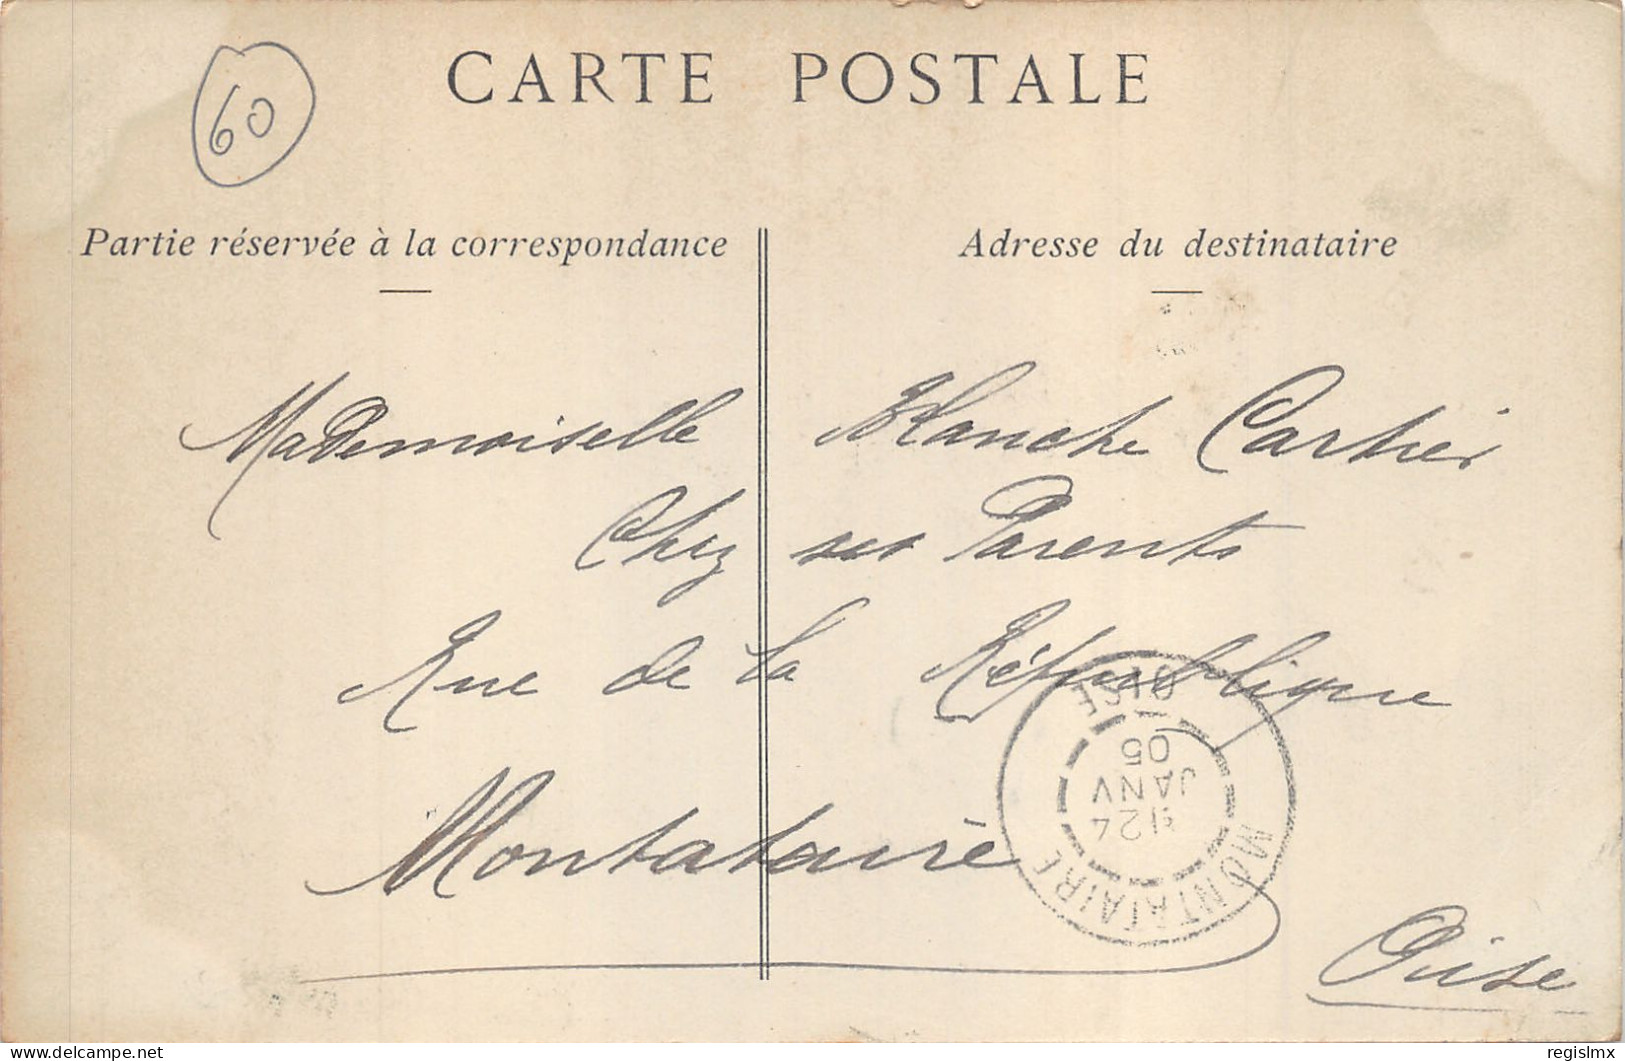 60
CARTE POSTALE
Partie réservée à la correspondance
Adresse du destinataire
Mademoiselle Blanche Cartier
Chez ses Parents
Rue de la République
Montataire
Oise
MONTATAIRE
24
JANV
05
OISE
delcampe.net
regislmx